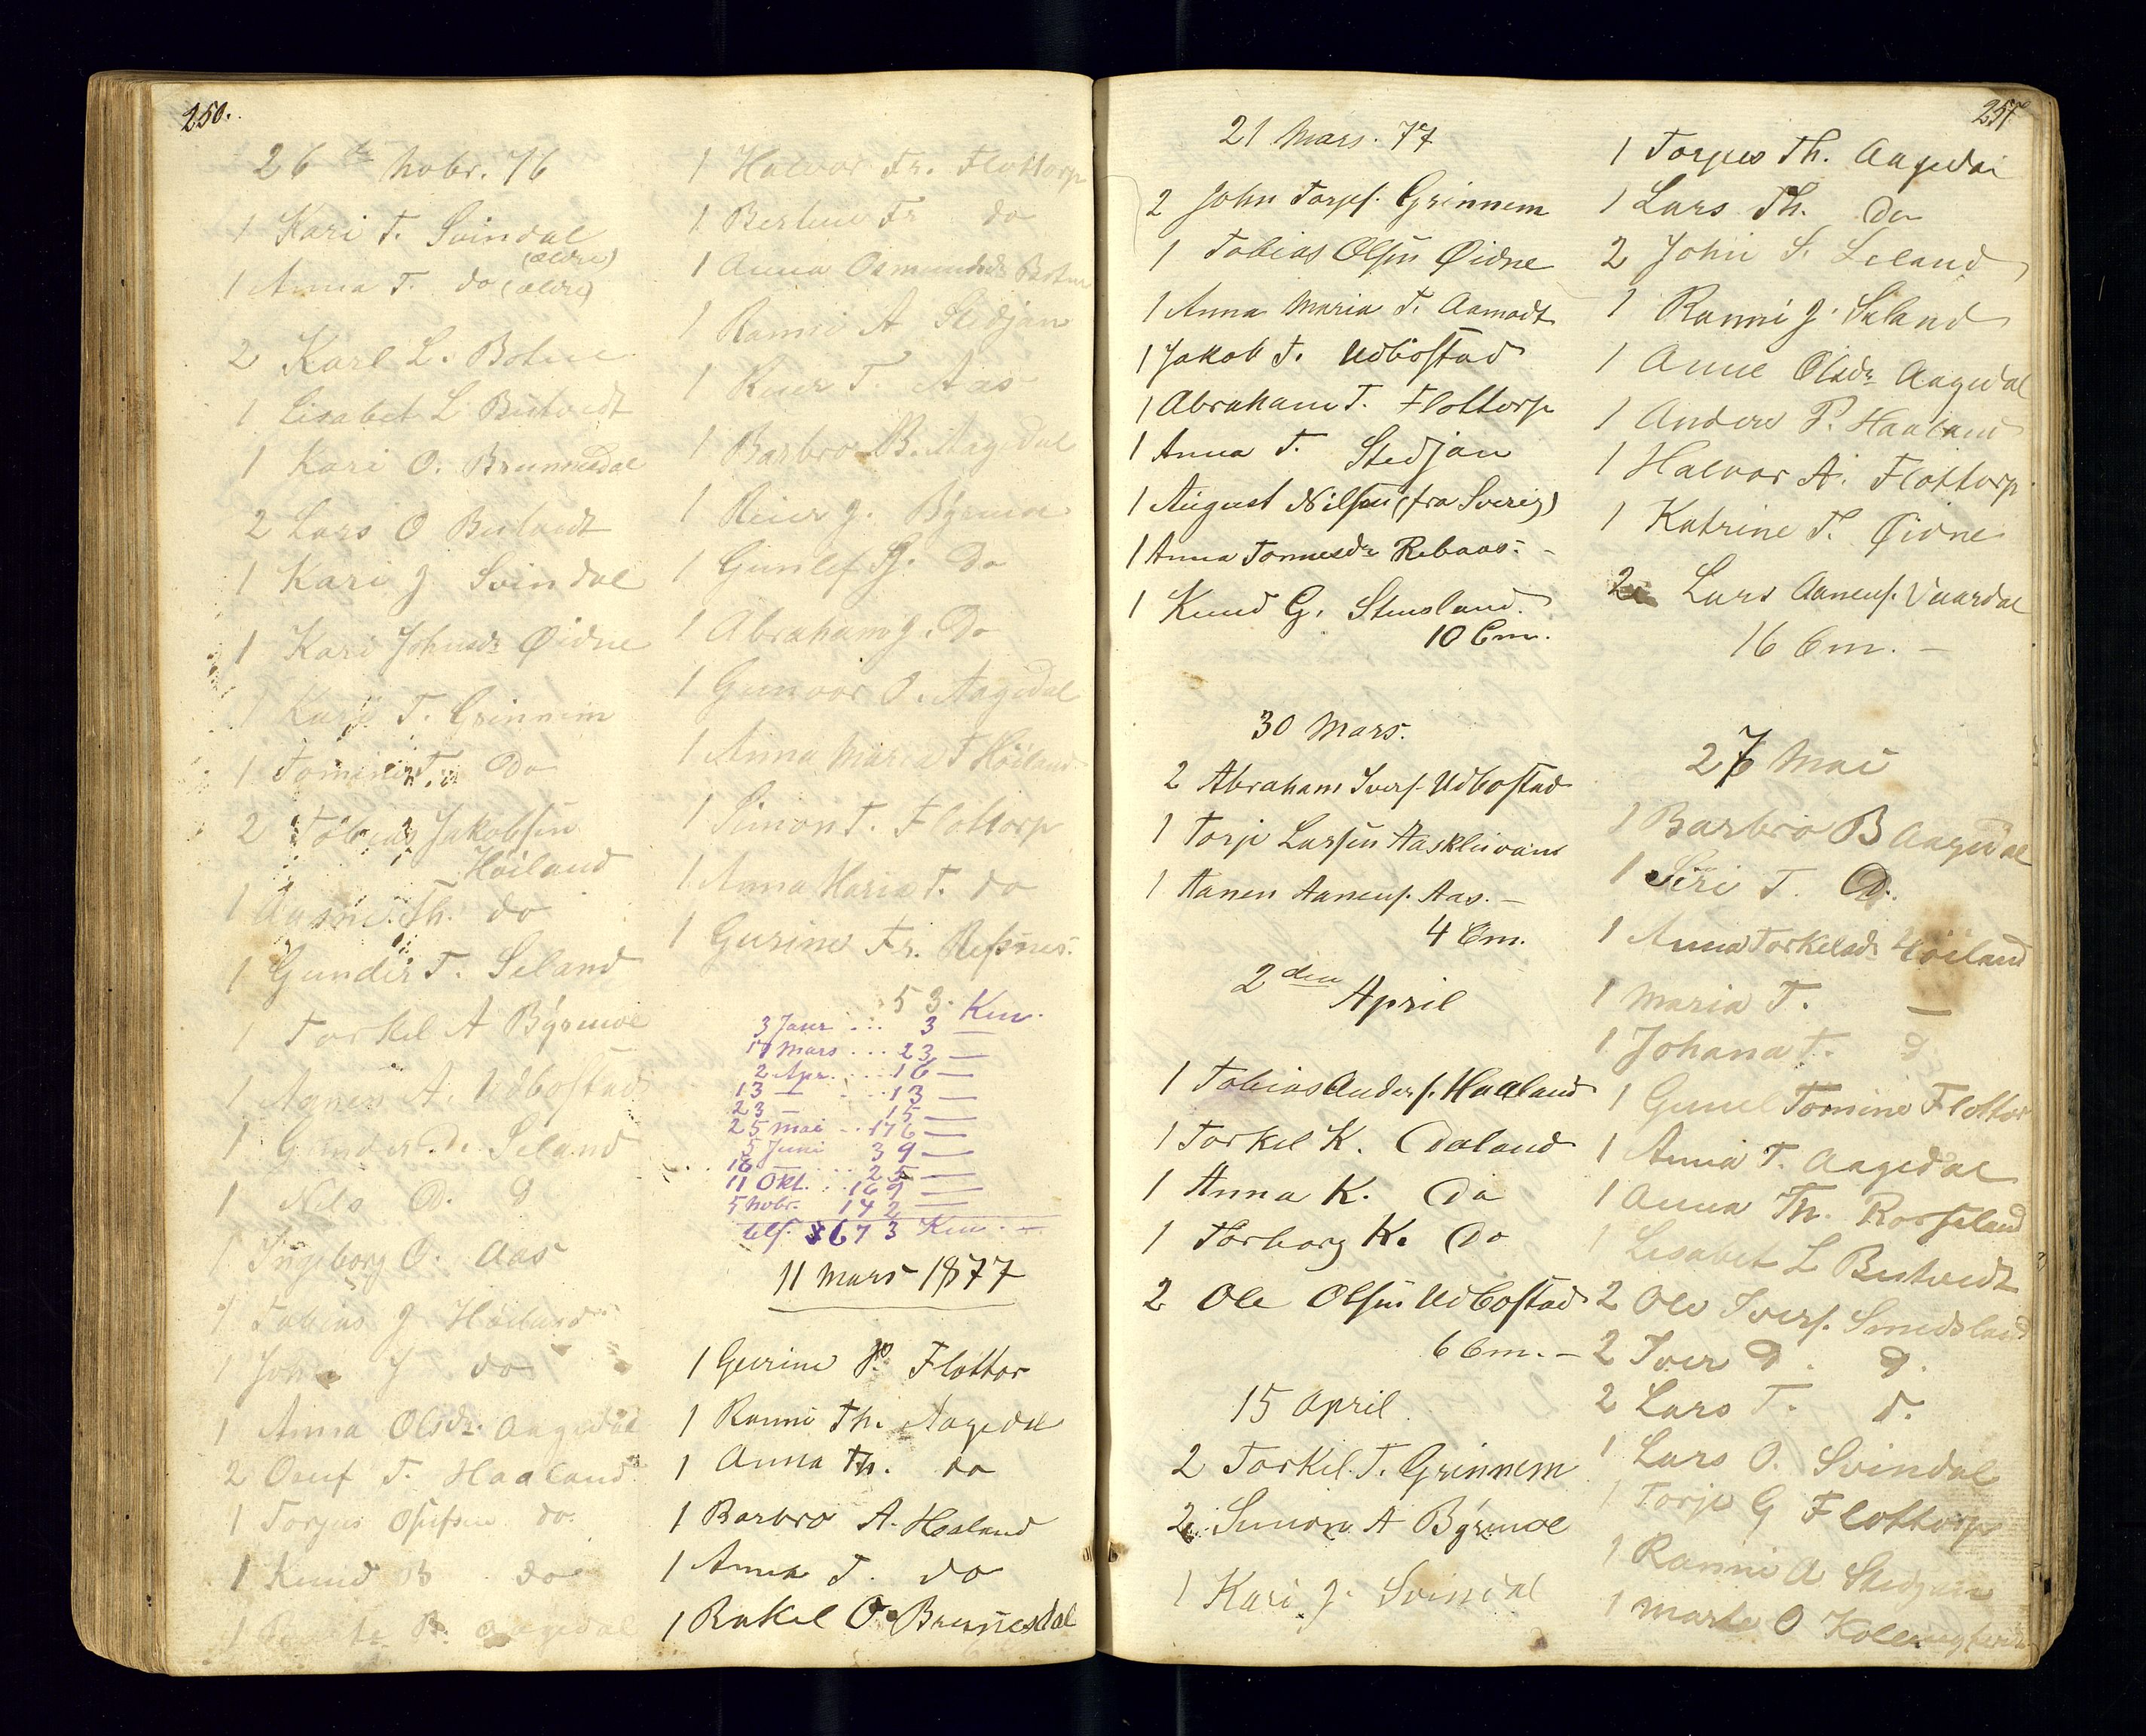 250.
26 de Nobr. 76
1 Kari T. Svindal
(ældre)
1 Anna T. do (ældre)
2 Karl L. Botne
1 Lisabet L Bustvedt
1 Kari O. Brunnesdal
2 Lars O Bustvedt
1 Kari J Svindal
1 Kari Johnsdr Øidne
1 Kari T. Grinnem
1 Tomine T. Do
2 Tobias Jakobsen
Höiland
1 Th. do
1 Gunder T. Seland
1 Torkel A Bÿremoe
1 Agnes A. Udbøstad
1 Gunder Seland
1 Nels O. d
1 Ingeborg O. Aas
1 Tobias J Höiland
1 John J do
1 Anna Olsdr. Aagedal
2 Osuf T. Haaland
1 Torjus Osufsen do.
1 Knud B do
1 B. Aagedal
1 Halvor Fr. Flottorp
1 Bertine Fr do
1 Anna Osmundsdr Botne
1 Ranni A Stedjan
1 Reier T. Aas
1 Barbro B. Aagedal
1 Reier J. Bÿremoe
1 Gunlef J. Do
1 Abraham J. Do
1 Gunvor O. Aagedal
1 Anna Maria T Höiland
1 Simon T. Flottorp
1 Anna Maria T. do
1 Gurine Fr. Refsnes.
53 Km.
3 Janr ... 3 —
17 Mars ... 23 —
2 Apr. ... 16 —
13 — ... 13 —
23 — 15 —
25 Mai .. 176 —
5 Juni 39 —
18 — ... 25 —
11 Okt. .. 169 —
5 Nobr. 142 —
tils. 673 Km. —
11 Mars 1877
1 Gurine P. Flottor
1 Ranni Th. Aagedal
1 Anna Th. do
1 Barbro A. Haaland
1 Anna T. do
1 Rakel O. Brunnesdal
257
21 Mars. 77
2 John Torjes. Grinnem
1 Tobias Olsen Øidne
1 Anna Maria T. Aamodt
1 Jakob T. Udbøstad
1 Abraham T. Flottorp
1 Anna T. Stedjan
1 August Nilsen (fra Sverig)
1 Anna Tønnesdr Rebaas. -
1 Knud G. Stensland.
10 Cm.
30 Mars.
2 Abraham Ivers. Udbøstad
1 Torje Larsen Aasklivand
1 Aanen Aanens. Aas. —
4 Cm.
2den April
1 Tobias Anders. Haaland
1 Torkel K. Daland
1 Anna K. Do
1 Torborg K. Do
2 Ole Olsen Udbøstad
6 Cm. —
15 April
2 Torkel T. Grinnem
2 Simon A Bÿremoe
1 Kari J. Svindal
1 Torjus Th. Aagedal
1 Lars Th. Do
2 John S. Seland
1 Ranni J. Seland
1 Anne Olsdr Aagedal
1 Anders P. Haaland
1 Halvor A. Flottorp
1 Katrine T. Øidne
2 Lars Aanens. Vaardal
16 Cm. —
27 Mai
1 Barbro B Aagedal
1 Siri T. D.
1 Anna Torkelsdr Höiland
1 Maria T. —
1 Johana T. d
1 Gunel Tomine Flottor
1 Anna T. Aagedal
1 Anna Th. Rosseland
1 Lisabet L Bustvedt
2 Ole Ivers. Smedsland
2 Iver d. d.
2 Lars T. d.
1 Lars O. Svindal
1 Torje G Flottorp
1 Ranni A Stedjan
1 Marte O